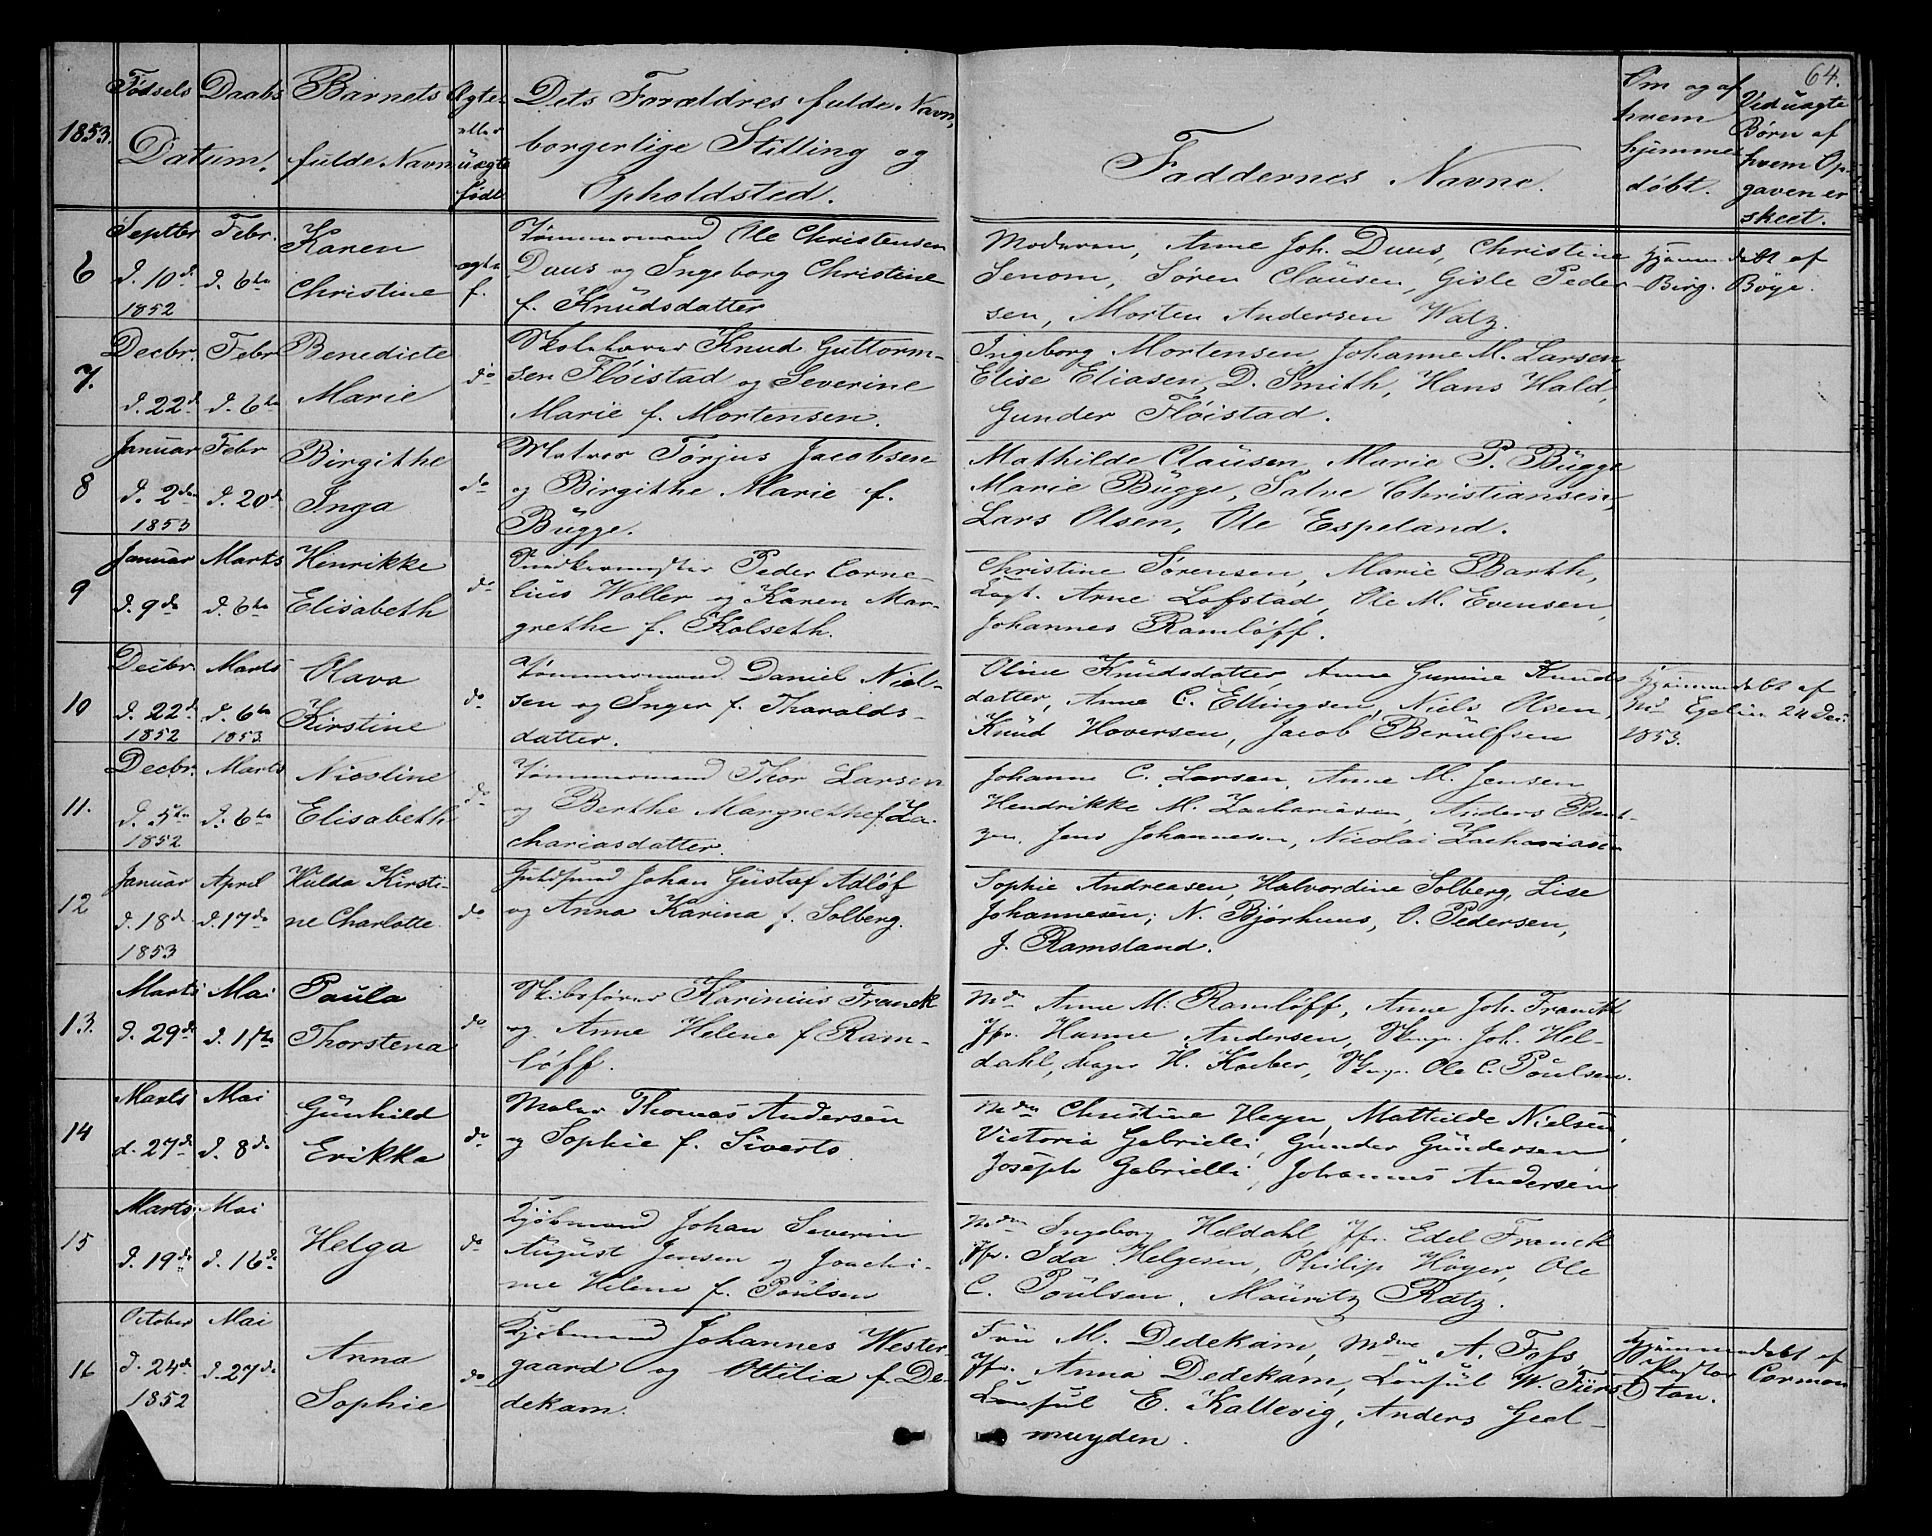 64.
1853.
Fødsels Daabs
Datum.
Barnets
fulde Navn
Ægte
eller
uægte
født
Dets Forældres fulde Navn,
borgerlige Stilling og
Opholdsted.
Faddernes Navne.
Om og af
hvem
hjemme
døbt.
Ved uægte
Børn af
hvem Op-
gaven er
skeet.
6
Septbr
d. 10d
1852
Febr.
d. 6te
Karen
Christine
ægte
f.
Tømmermand Ole Christensen
Duus og Ingeborg Christine
f. Knudsdatter
Moderen, Anne Joh. Duus, Christine
Senom, Søren Clausen, Gisle Peder-
sen, Morten Andersen Watz.
Hjemmedøbt af
Birg. Bøye.
7.
Decbr.
d. 22d
Febr
d. 6te
Benedicte
Marie
do
Skolelærer Knud Guttorm-
sen Fløistad og Severine
Marie f. Mortensen.
Ingeborg Mortensen, Johanne M. Larsen
Elise Eliasen, D. Smith, Hans Wald,
Gunder Fløistad.
8
Januar
d. 2den
1853
Febr
d. 20d
Birgithe
Inga
do
Matros Torjus Jacobsen
og Birgithe Marie f.
Bügge.
Mathilde Clausen, Marie P. Bügge
Marie Bügge, Salve Christiansen,
Lars Olsen, Ole Espeland.
9
Januar
d. 9de
Marts
d. 6te
Henrikke
Elisabeth
do
Snedkermester Peder Corne-
lius Woller og Karen Mar-
grethe f. Kolseth.
Christine Sørensen, Marie Barth,
Arne Lofstad, Ole M. Evensen,
Johannes Ramløff.
10
Decbr.
d. 22d
1852
Marts
d. 6te
1853
Olava
Kirstine
do
Tømmermand Daniel Niel-
sen og Inger f. Tharalds-
datter.
Oline Knudsdatter, Anne Gurine Knuds
datter, Anne C. Ellingsen, Niels Olsen,
Knud Hoversen, Jacob Berulfsen
Hjemmedøbt af
Md Egelin 24 Dec.
1853.
11.
Decbr.
d. 5te
1852
Marts
d. 6te
Nicoline
Elisabeth
do
Tømmermand Thor Larsen
og Berthe Margrethe f. Za-
chariasdatter.
Johanne C. Larsen, Anne M. Jensen
Hendrikke M. Zachariasen, Anders Bent-
zen, Jens Johannesen, Nicolai Zachariasen
12
Januar
d. 18d
1853
April
d. 17de
Hulda Kirsti-
ne Charlotte
do
Guldsmed Johan Gustaf Adløf
og Anna Karina f. Solberg.
Sophie Andreasen, Halvordine Solberg, Lise
Johannesen, N. Bjørhuus, O. Pedersen,
J. Ramsland.
13.
Marts
d. 29d
Mai
d. 1ste
Paula
Thorstena
do
Skibsfører Karinius Franck
og Anne Helene f. Ram-
løff.
Md Anne M. Ramløff, Anne Joh. Franck
Jfr. Hanne Andersen, Joh. Hel-
dahl, H. Kaeber, Ole C. Poulsen.
14
Marts
d. 27d
Mai
d. 8de
Günhild
Erikka
do
Maler Thomas Andersen
og Sophie f. Siverts.
Mdm Christine Heyn, Mathilde Nielsen,
Victoria Gabrielli, Gunder Gundersen
Joseph Gabrielli, Johannes Andersen
15
Marts
d. 19de
Mai
d. 16de
Helga
do
Kjøbmand Johan Severin
August Jensen og Joachi-
me Helene f. Poülsen
Mdm Ingeborg Heldahl, Jfr. Edel Franck
Jfr. Ida Helgesen, Philip Høyer, Ole
C. Poülsen, Mauritz Ratz.
16
October
d. 24d
1852
Mai
d. 27de
Anna
Sophie
do
Kjøbmand Johannes Wester-
gaard og Ottilia f. De-
dekam.
Frü M. Dedekam, Mdme A. Foss
Jfr. Anna Dedekam, Konsul W. Fürst
Konsul E. Kallevig, Anders Geel-
muyden.
Hjemmedøbt af
Pastor Corman
Dtan.